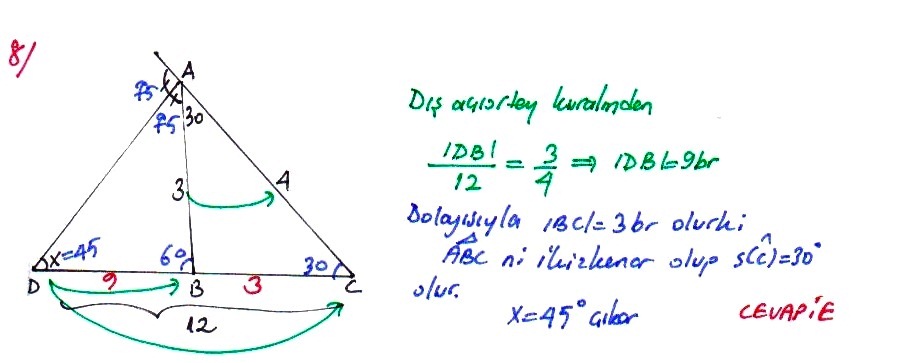 8/
A
75
75
30
3
4
x=45
60
30
D
9
B
3
C
12
Dış açıortay kuralından
|DB|/12 = 3/4 ⇒ |DB|=9br
Dolayısıyla |BC|=3br olurki
ABC ni ikizkenar olup s(ĉ)=30°
olur.
x=45° çıkar
CEVAP:E